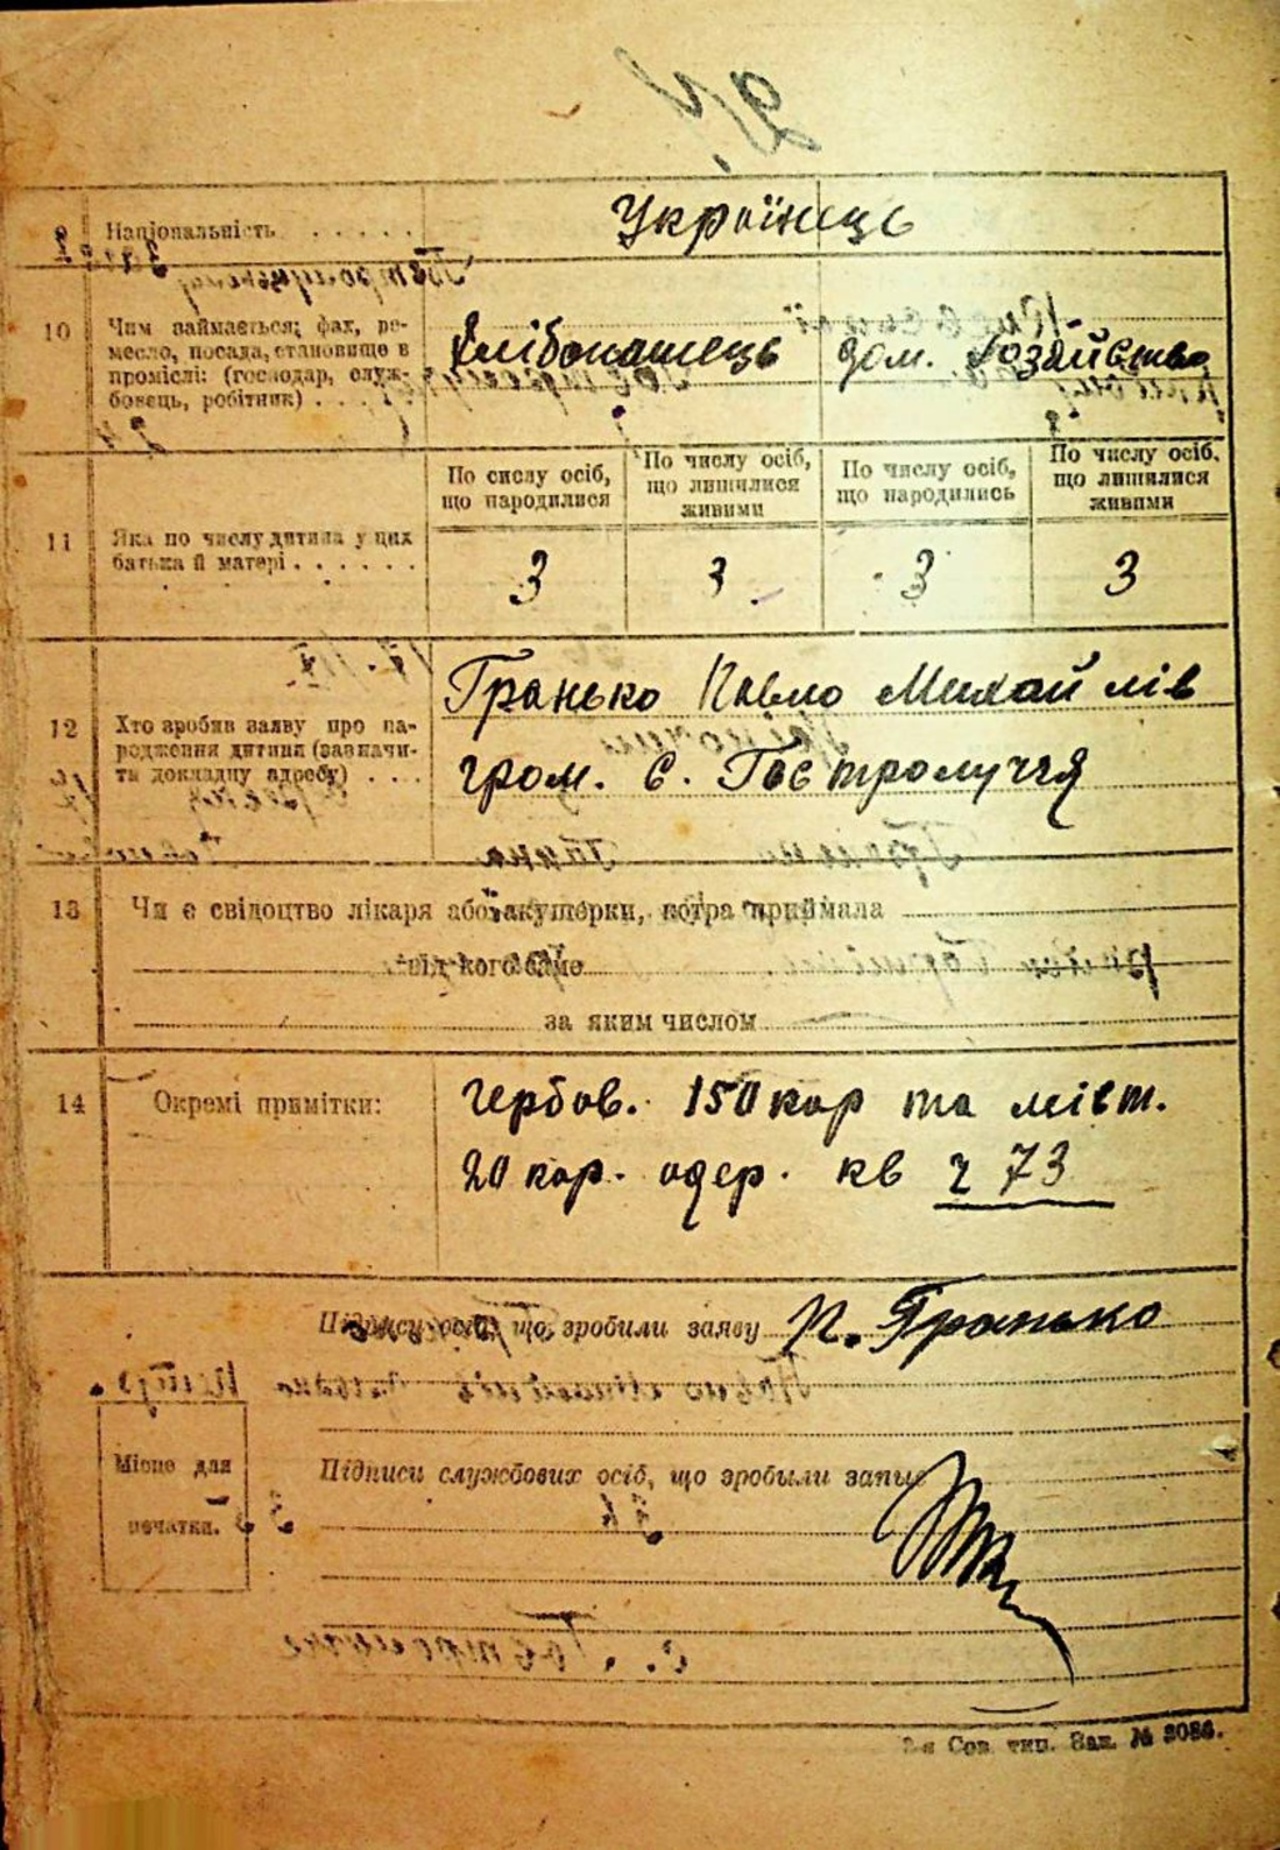 9 Національність . . . . . Українець
10 Чим займається; фах, ре-
месло, посада, становище в
проміслі: (господар, служ-
бовець, робітник) . . .
Хлібопашець дом. хозяйство
11 Яка по числу дитина у цих
батька й матері . . . . . .
По числу осіб,
що народилися
По числу осіб,
що лишилися
живими
По числу осіб,
що народились
По числу осіб,
що лишилися
живими
3 3 3 3
12 Хто зробив заяву про на-
родження дитини (зазначи-
ти докладну адресу) . . .
Гранько Павло Михайлів
гром. с. Гостролуччя
13 Чи є свідоцтво лікаря або акушерки, котра приймала
від кого саме
за яким числом
14 Окремі примітки:
гербов. 150 кар та міст.
20 кар. одер. кв ч 73
Підписи осіб, що зробили заяву П. Гранько
Місце для
печатки.
Підписи службових осіб, що зробыли запыс
2-я Сов. тип. Зак. № 3086.